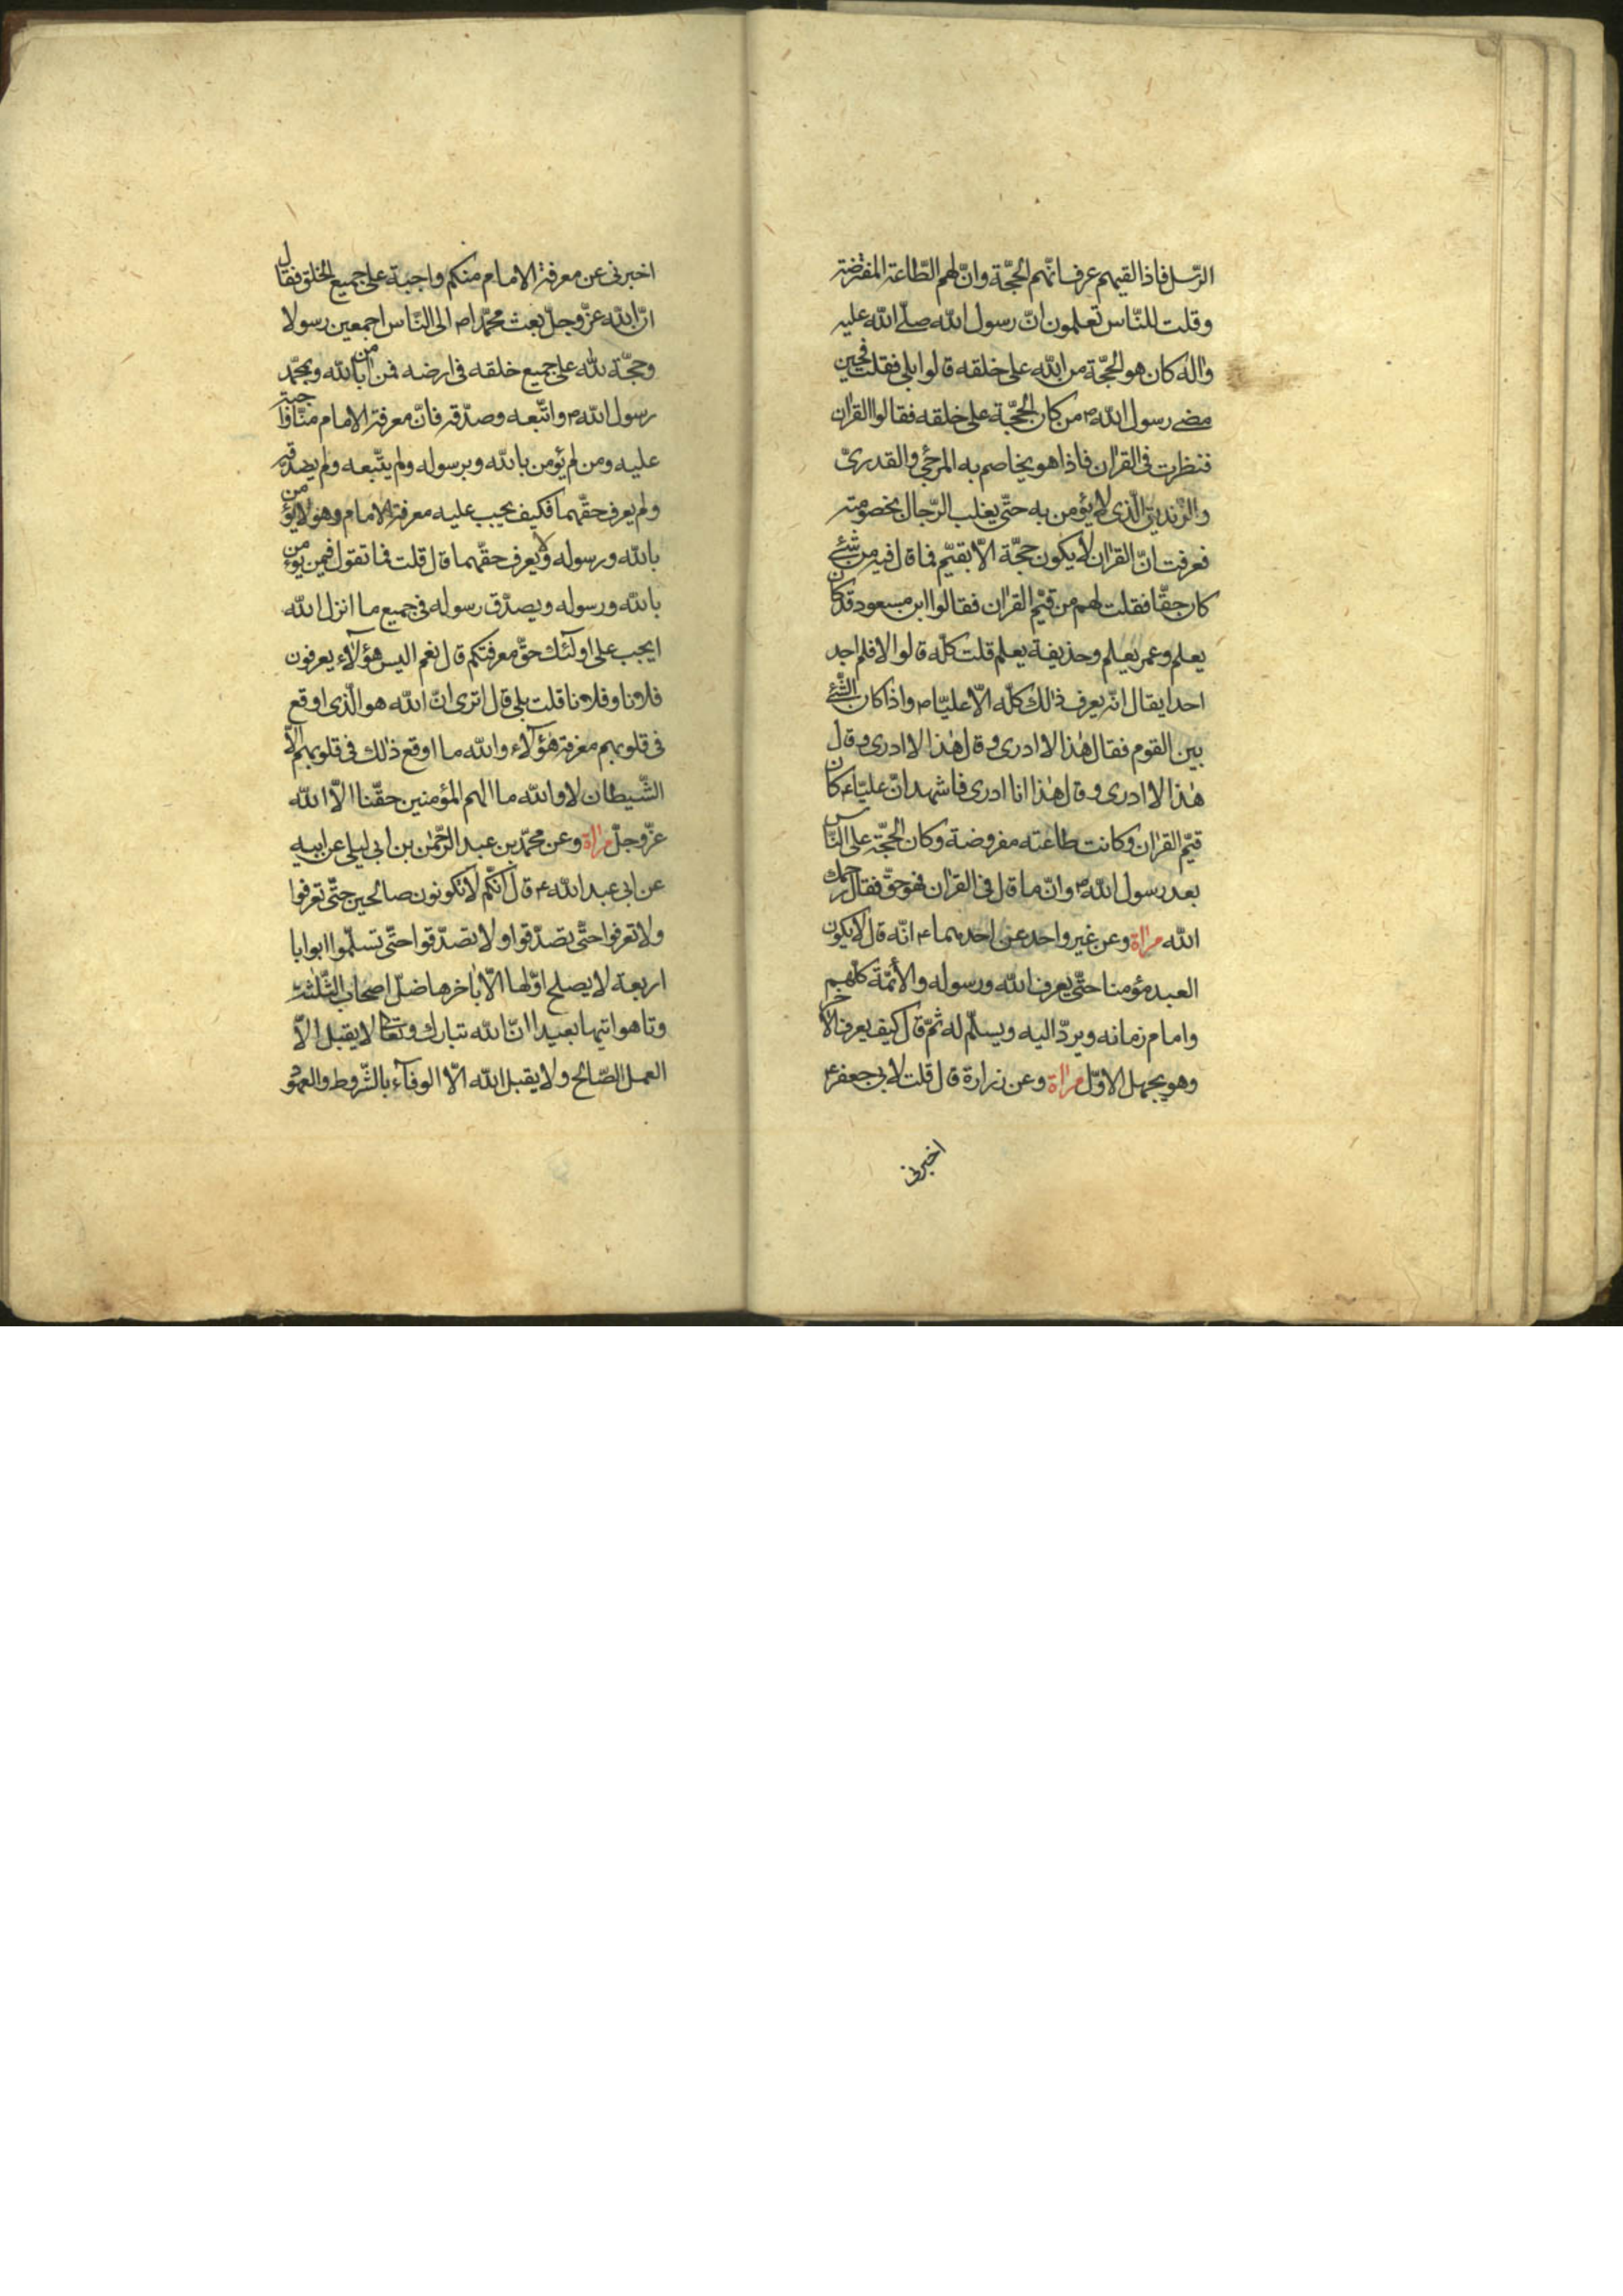 الرّسل فاذا لقيهم عرف انّهم الحجّة وانّ لهم الطّاعة المفترضة
وقلت للنّاس تعلمون انّ رسول الله صلّى الله عليه
واله كان هو الحجّة من الله على خلقه قالوا بلى فقلت فحين
مضى رسول الله ص من كان الحجّة على خلقه فقالوا القران
فنظرت فى القران فاذا هو يخاصم به المرجئ والقدرىّ
والزّنديق الّذى لا يؤمن به حتّى يغلب الرّجال بخصومته
فعرفت انّ القران لا يكون حجّة الاّ بقيّم فما قال فيه من شئ
كان حقّا فقلت لهم من قيّم القران فقالوا ابن مسعود قد كان
يعلم وعمر يعلم وحذيفة يعلم قلت كلّه قالوا لا فلم اجد
احدا يقال انّه يعرف ذلك كلّه الاّ عليّا ص واذا كان الشّئ
بين القوم فقال هذا لا ادرى وقال هذا لا ادرى وقال
هذا لا ادرى وقال هذا انا ادرى فاشهد انّ عليّا ع كان
قيّم القران وكانت طاعته مفروضة وكان الحجّة على النّاس
بعد رسول الله ص وانّ ما قال فى القران فهو حقّ فقال رحمك
الله مراة وعن غير واحد عن احدهما ع انّه قال لا يكون
العبد مؤمنا حتّى يعرف الله ورسوله والأئمّة كلّهم
وامام زمانه ويردّ اليه ويسلّم له ثمّ قال كيف يعرف الاخر
وهو يجهل الاوّل مراة وعن زرارة قال قلت لابى جعفر ع
اخبرنى
اخبرنى عن معرفة الامام منكم واجبة على جميع الخلق فقال
انّ الله عزّ وجلّ بعث محمّدا ص الى النّاس اجمعين رسولا
وحجّة لله على جميع خلقه فى ارضه فمن امن بالله وبمحمّد
رسول الله ص واتّبعه وصدّقه فانّ معرفة الامام منّا واجبة
عليه ومن لم يؤمن بالله وبرسوله ولم يتّبعه ولم يصدّقه
ولم يعرف حقّهما فكيف يجب عليه معرفة الامام وهو لا يؤمن
بالله ورسوله ولا يعرف حقّهما قال قلت فما تقول فيمن يؤمن
بالله ورسوله ويصدّق رسوله فى جميع ما انزل الله
ايجب على اولئك حقّ معرفتكم قال نعم اليس هؤلاء يعرفون
فلانا وفلانا قلت بلى قال اترى انّ الله هو الّذى اوقع
فى قلوبهم معرفة هؤلاء والله ما اوقع ذلك فى قلوبهم الاّ
الشّيطان لا والله ما الهم المؤمنين حقّنا الاّ الله
عزّ وجلّ مراة وعن محمّد بن عبد الرّحمن بن ابى ليلى عن ابيه
عن ابى عبد الله ع قال انّكم لا تكونون صالحين حتّى تعرفوا
ولا تعرفوا حتّى تصدّقوا ولا تصدّقوا حتّى تسلّموا ابوابا
اربعة لا يصلح اوّلها الاّ باخرها ضلّ اصحاب الثّلثة
وتاهوا تيها بعيدا انّ الله تبارك وتعالى لا يقبل الاّ
العمل الصّالح ولا يقبل الله الاّ الوفاء بالشّروط والعهود